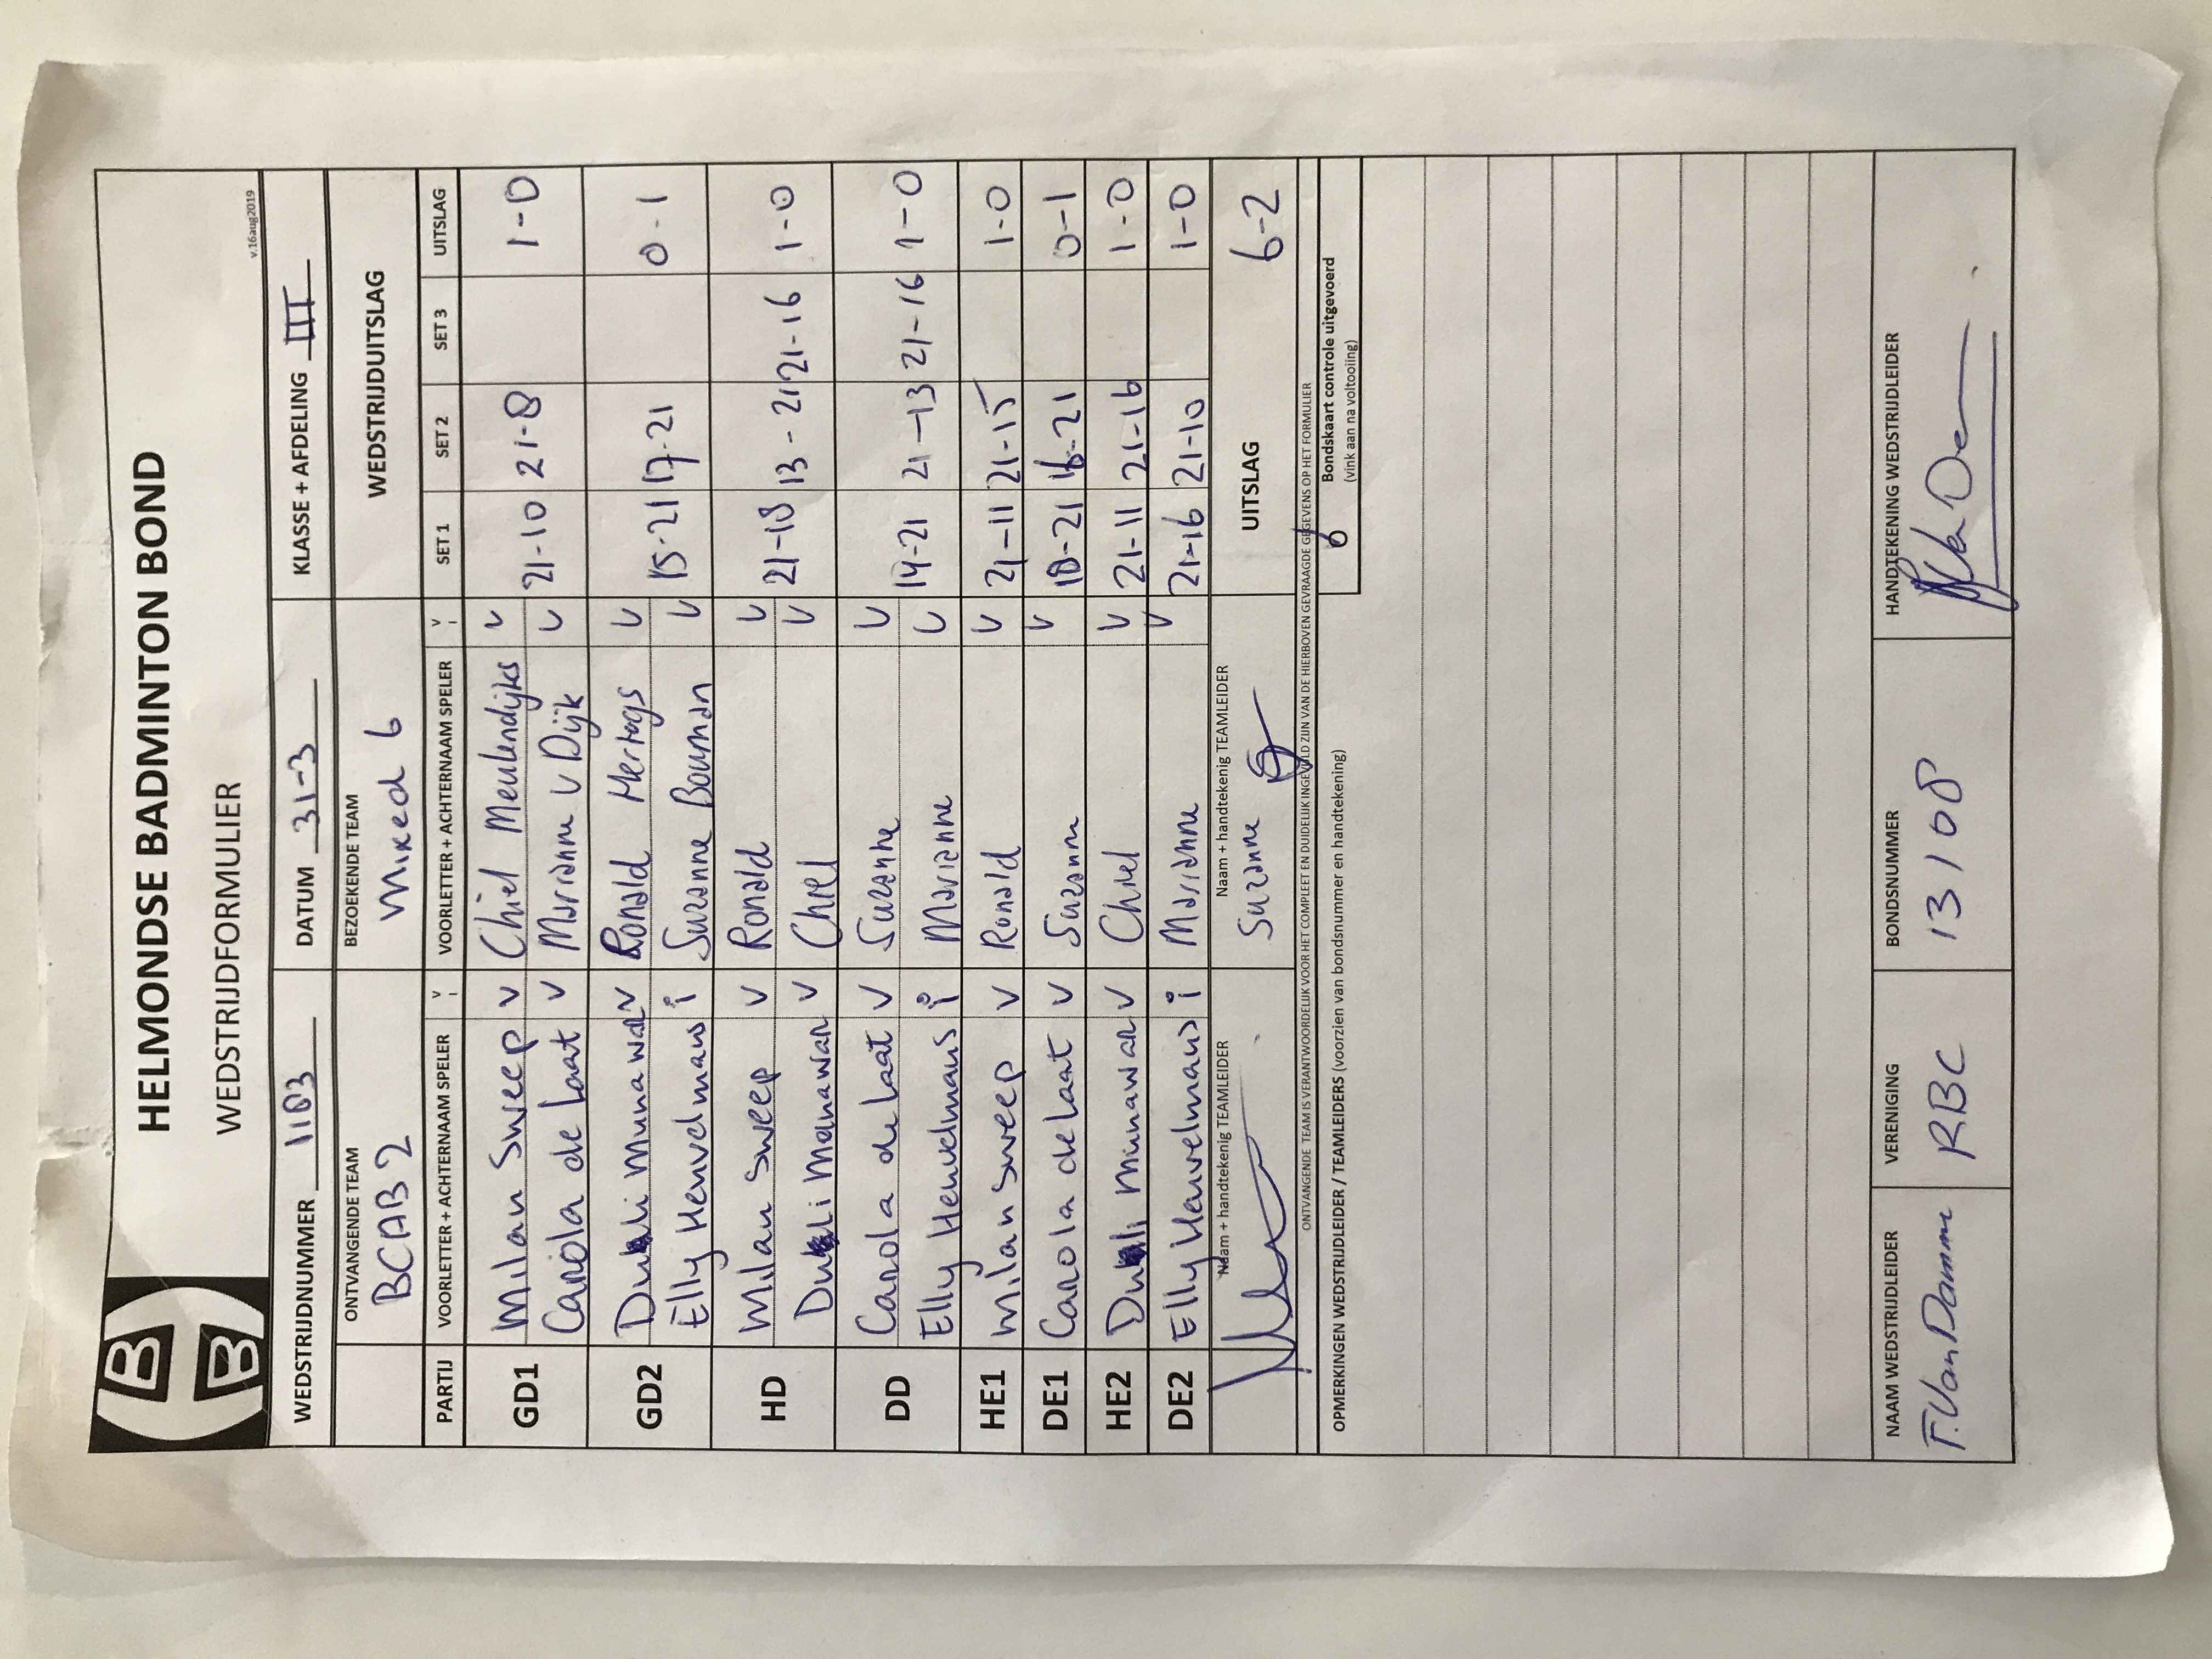 HELMONDSE BADMINTON BOND
WEDSTRIJDFORMULIER
v.16aug2019
WEDSTRIJDNUMMER 1103 DATUM 31-3 KLASSE + AFDELING III
ONTVANGENDE TEAM BEZOEKENDE TEAM WEDSTRIJDUITSLAG
BCAB 2 Mixed 6
PARTIJ VOORLETTER + ACHTERNAAM SPELER V I VOORLETTER + ACHTERNAAM SPELER V I SET 1 SET 2 SET 3 UITSLAG
GD1 Milan Sweep V Chiel Meulendijks V 21-10 21-8 1-0
Carola de Laat V Marianne v Dijk V
GD2 Munawar V Ronald Mertogs V 15-21 17-21 0-1
Elly Heuvelmans i Suzanne Bouman V
HD Milan Sweep V Ronald V 21-18 13-21 21-16 1-0
Munawar V Chiel V
DD Carola de Laat V Suzanne V 14-21 21-13 21-16 1-0
Elly Heuvelmans i Marianne V
HE1 Milan Sweep V Ronald V 21-11 21-15 1-0
DE1 Carola de Laat V Suzanne V 18-21 16-21 0-1
HE2 Munawar V Chiel V 21-11 21-16 1-0
DE2 Elly Heuvelmans i Marianne V 21-16 21-10 1-0
Naam + handtekenig TEAMLEIDER Naam + handtekenig TEAMLEIDER UITSLAG 6-2
Suzanne
ONTVANGENDE TEAM IS VERANTWOORDELIJK VOOR HET COMPLEET EN DUIDELIJK INGEVULD ZIJN VAN DE HIERBOVEN GEVRAAGDE GEGEVENS OP HET FORMULIER
OPMERKINGEN WEDSTRIJDLEIDER / TEAMLEIDERS (voorzien van bondsnummer en handtekening) Bondskaart controle uitgevoerd
(vink aan na voltooiing)
NAAM WEDSTRIJDLEIDER VERENIGING BONDSNUMMER HANDTEKENING WEDSTRIJDLEIDER
T. Van Damme RBC 13108